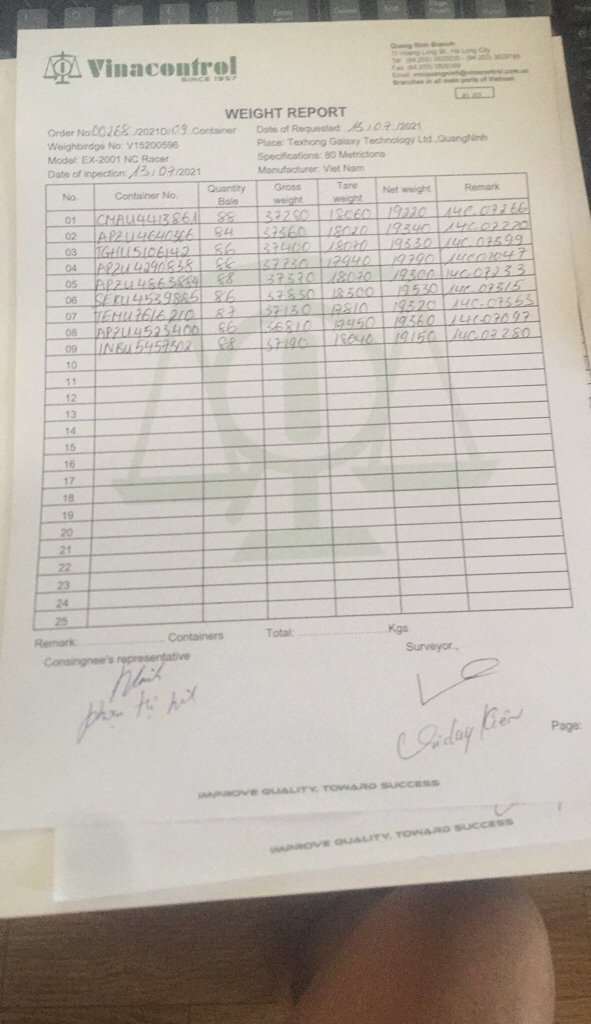 Vinacontrol
SINCE 1957
Quang Ninh Branch
Branches in all main ports of Vietnam
WEIGHT REPORT
Order No: 00268 /2021D/09 Container
Date of Requested: 13/07/2021
Weighbirdge No: V15200596
Place: Texhong Galaxy Technology Ltd.,QuangNinh
Model: EX-2001 NC Racer
Specifications: 80 Metrictons
Date of inpection: 13/07/2021
Manufacturer: Viet Nam
No. Container No. Quantity Bale Gross weight Tare weight Net weight Remark
01 CMAU4413861 88 37280 18060 19220 14C.07266
02 APZU4640366 84 37360 18020 19340 14C.02220
03 TGHU5106142 86 37400 18070 19330 14C.07399
04 APZU4290838 88 37730 17940 19790
05 APZU4863884 88 37370 18070 19300 14C.07233
06 SEKU4539885 86 37830 18300 19530 14C.07315
07 TEMU7616210 87 37130 17810 19320 14C.07363
08 APZU4523400 86 36810 17450 19360 14C.07097
09 INBU5457302 88 37190 18040 19150 14C.07280
10
11
12
13
14
15
16
17
18
19
20
21
22
23
24
25
Remark: Containers Total: Kgs
Consingnee's representative
Surveyor.,
Page:
IMPROVE QUALITY, TOWARD SUCCESS
IMPROVE QUALITY, TOWARD SUCCESS